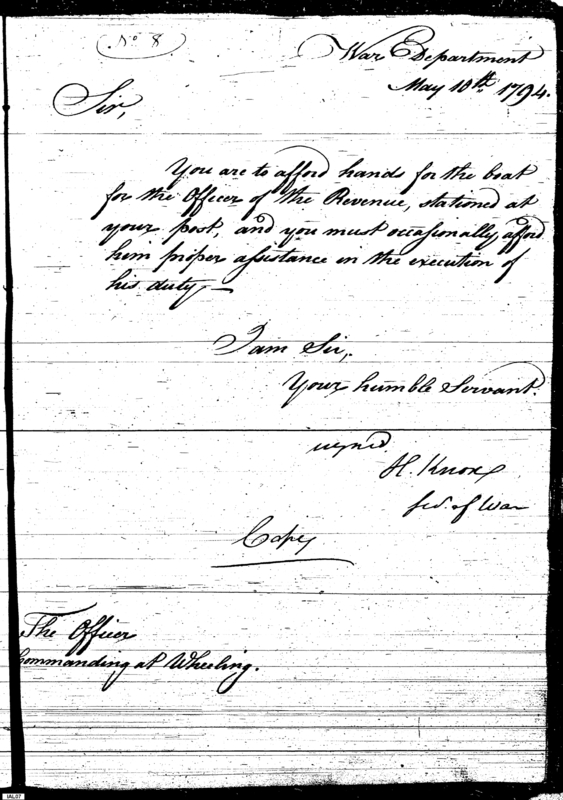 No 8
War Department
May 10th 1794.
Sir,
You are to afford hands for the boat
for the Officer of the Revenue, stationed at
your post, and you must occasionally afford
him proper assistance in the execution of
his duty —
I am Sir,
Your humble Servant.
signed.
H. Knox
Sec. of War
Copy
The Officer
Commanding at Wheeling.
IAL07